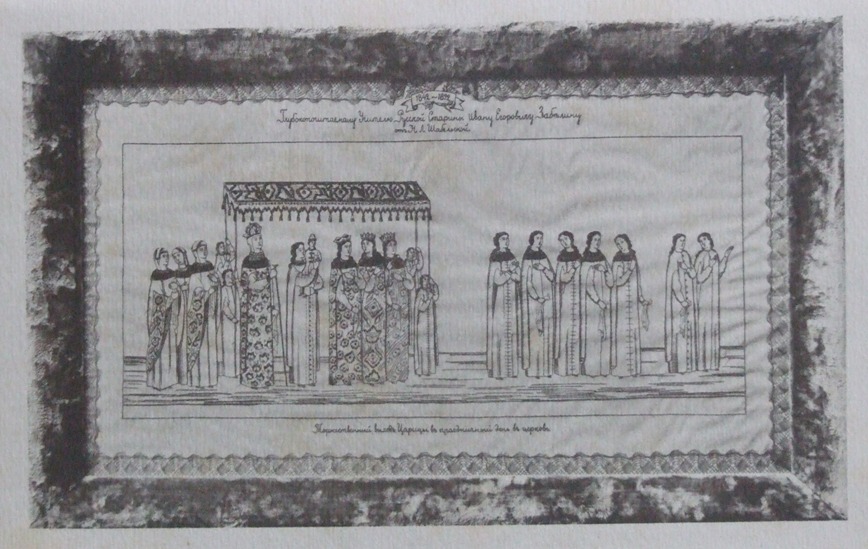 1842–1892
Глубокочтимому Учителю Русской Старины Ивану Егоровичу Забелину
отъ Н. Л. Шабельской.
Торжественный выходъ Царицы въ праздничный день въ церковь